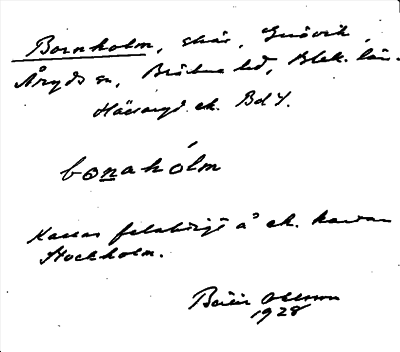 Bornholm, skär, Guövik,
Åryds sn, Bräkne hd, Blek. län.
Hällaryd ek. Bd 4.
bonahólm
Kallas felaktigt å ek. kartan
Stockholm.
Ohlsson
1928